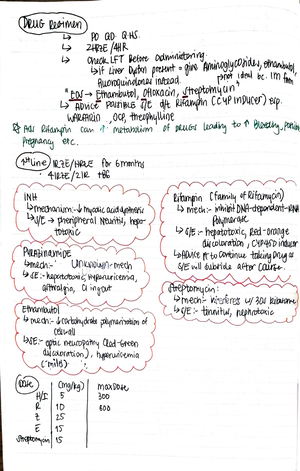 DRUG REGIMEN
↳ PO QD QHS.
↳ 2HRZE/4HR
↳ Check LFT Before administering.
↳ if Liver Dysfxn present = give Aminoglycosides, ethambutol,
fluoroquinolones instead.
not ideal bc. IM form
"EOS" → Ethambutol, Ofloxacin, Streptomycin
↳ ADVICE POSSIBLE S/E d/t Rifampin (CYP inducer) esp.
WARFARIN, OCP, theophylline
Rifampin can ↑ metabolism of DRUGS leading to ↑ Bleeding,
Pregnancy etc.
1st Line for 6 months
4HRZE/2IR
INH
↳ mechanism:- ↓ mycolic acid synthesis
↳ S/E → pheripheral Neuritis, hepa-
totoxic
Rifampin (family of Rifamycin)
↳ mech:- inhibit DNA-dependent-RNA
Polymerase
↳ S/E:- hepatotoxic, Red-orange
discoloration, CYP450 inducer
↳ ADVICE Pt to continue taking Drug as
S/E will subside after course.
Pyrazinamide
↳ mech:- Unknown-mech
↳ SE:- hepatotoxic, Hyperuricemia,
arthralgia, CI in gout
Streptomycin:-
↳ mech:- interferes w/ 30s Ribosome
↳ S/E:- tinnitus, nephrotoxic
Ethambutol
↳ mech:- ↓ carbohydrate polymerization of
cell wall
↳ SE:- optic neuropathy (Red-Green
discoloration), hyperuricemia
(mild)
Dose (mg/kg) max Dose
H/I 5 300
R 10 600
Z 25
E 15
Streptomycin 15